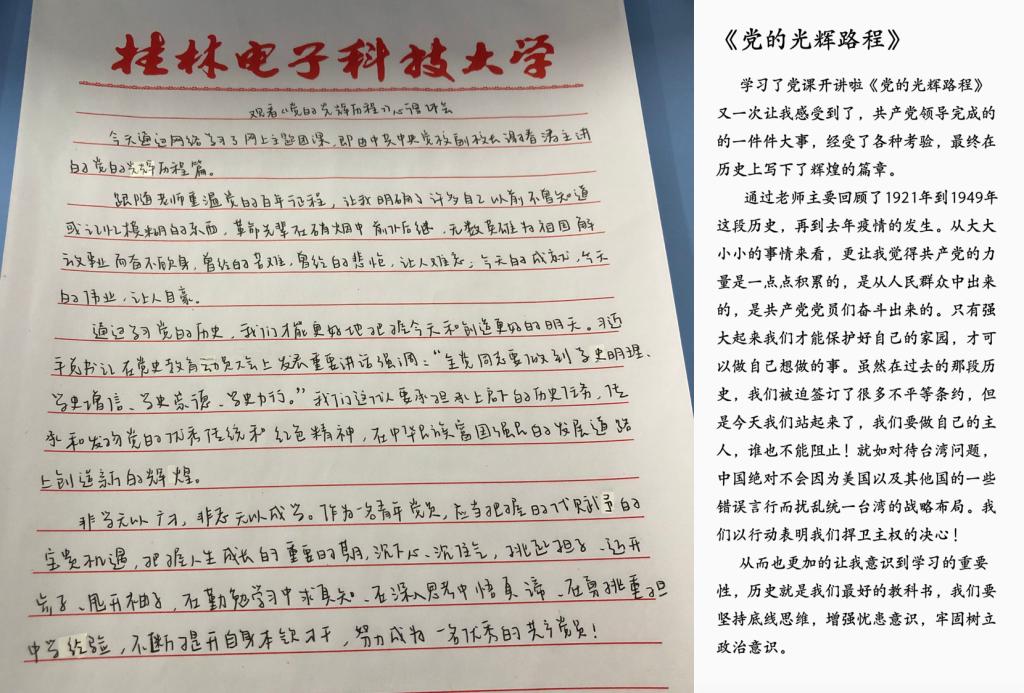 桂林电子科技大学
观看《党的光辉历程》心得体会
今天通过网络学习了网上主题团课，即由中共中央党校副校长谢春涛主讲
的党的光辉历程篇。
跟随老师重温党的百年征程，让我明确了许多自己以前不曾知道
或记忆模糊的东西，革命先辈在硝烟中前仆后继，无数英雄为祖国解
放事业而奋不顾身，曾经的苦难，曾经的悲怆，让人难忘；今天的成就，今天
的伟业，让人自豪。
通过学习党的历史，我们才能更好地把握今天和创造更好的明天。习近
平总书记在党史教育动员大会上发表重要讲话强调：“全党同志要做到学史明理、
学史增信、学史崇德、学史力行。”我们这代人要承担承上启下的历史任务，传
承和发扬党的优秀传统和红色精神，在中华民族富国强民的发展道路
上创造新的辉煌。
非学无以广才，非志无以成学。作为一名青年党员，应当把握时代赋予的
宝贵机遇，把握人生成长的重要时期，沉下心、沉住气，挑起担子、迈开
步子、甩开袖子，在勤勉学习中求真知、在深入思考中悟真谛、在勇挑重担
中学经验，不断提升自身本领才干，努力成为一名优秀的共产党员！
《党的光辉路程》
学习了党课开讲啦《党的光辉路程》
又一次让我感受到了，共产党领导完成的
的一件件大事，经受了各种考验，最终在
历史上写下了辉煌的篇章。
通过老师主要回顾了1921年到1949年
这段历史，再到去年疫情的发生。从大大
小小的事情来看，更让我觉得共产党的力
量是一点点积累的，是从人民群众中出来
的，是共产党党员们奋斗出来的。只有强
大起来我们才能保护好自己的家园，才可
以做自己想做的事。虽然在过去的那段历
史，我们被迫签订了很多不平等条约，但
是今天我们站起来了，我们要做自己的主
人，谁也不能阻止！就如对待台湾问题，
中国绝对不会因为美国以及其他国的一些
错误言行而扰乱统一台湾的战略布局。我
们以行动表明我们捍卫主权的决心！
从而也更加的让我意识到学习的重要
性，历史就是我们最好的教科书，我们要
坚持底线思维，增强忧患意识，牢固树立
政治意识。